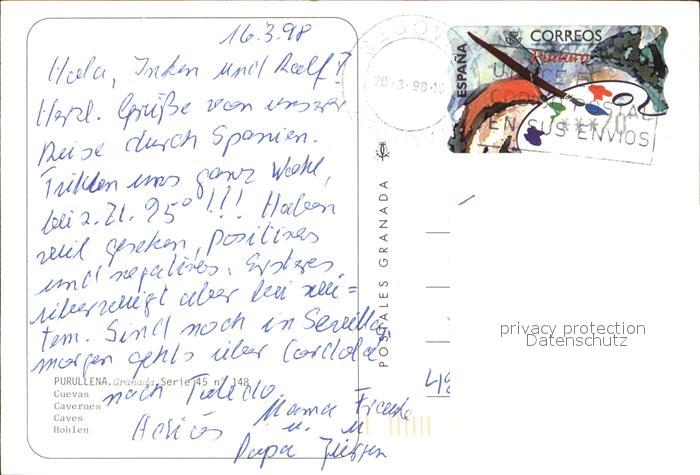 16.3.98
Hola, Inken und Ralf!
Herzl. Grüße von unserer
Reise durch Spanien.
Fühlen uns ganz wohl,
bei z. Zt. 25° !!! Haben
viel gesehen, positives
und negatives. Ersteres
überwiegt aber bei wei=
tem. Sind noch in Sevilla,
morgen gehts über Cordoba
nach Toledo.
Adios Mama
u.
Papa
PURULLENA. Granada Serie 45 nº 148
Cuevas
Cavernes
Caves
Hohlen
POSTALES GRANADA
20-3-98-19
ESPAÑA
CORREOS
Pintura
POSTAL
EN SUS ENVIOS
***70
privacy protection
Datenschutz